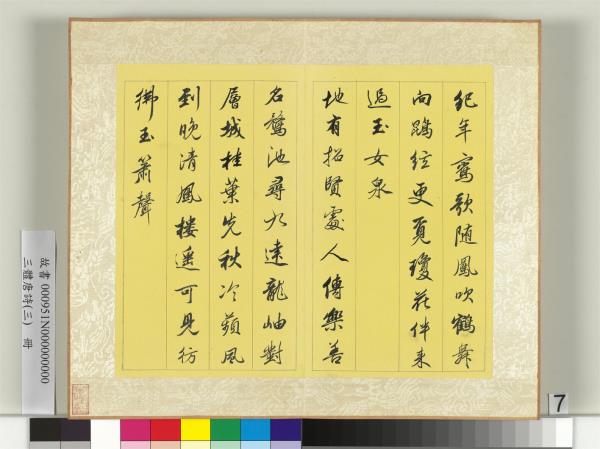 紀年鸞歌随鳳吹鶴舞
向鵾絃更覓瓊花伴來
過玉女泉
地有招賢處人傳樂善
名鶩池尋九逵龍岫對
層城桂葉先秋冷蘋風
到晚清鳳樓遙可見彷
彿玉簫聲
故書 000951N000000000
三體唐詩(三) 冊
7